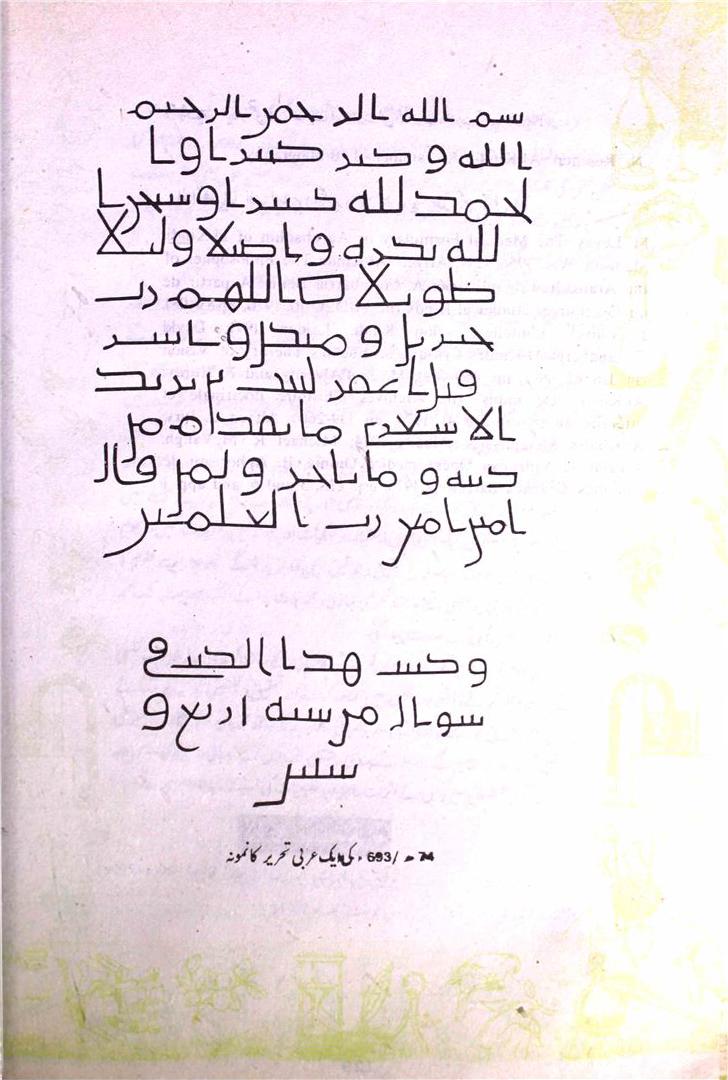 بسم الله الرحمن الرحيم
الله وكبر كبيرا وا
لحمد لله كثيرا وسبحن ا
لله بكرة واصيلا وليلا
طويلا اللهم رب
جبريل وميكل واسر
فيل اغفر لثبت بن يزيد
الاشعري ما تقدم من
ذنبه وما تاخر ولمن قال
امين امين رب العلمين
وكتبت هذا الكتب في
شوال من سنة اربع و
ستين
74ھ /693ء کی ایک عربی تحریر کا نمونہ